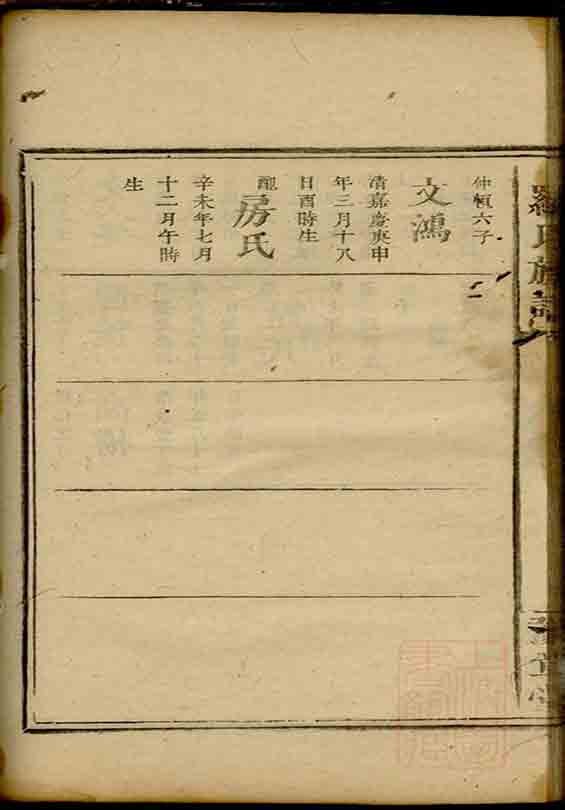 羅氏族譜
仲頎六子
文鴻
清嘉慶庚申
年三月十八
日酉時生
配
房氏
辛未年七月
十二月午時
生